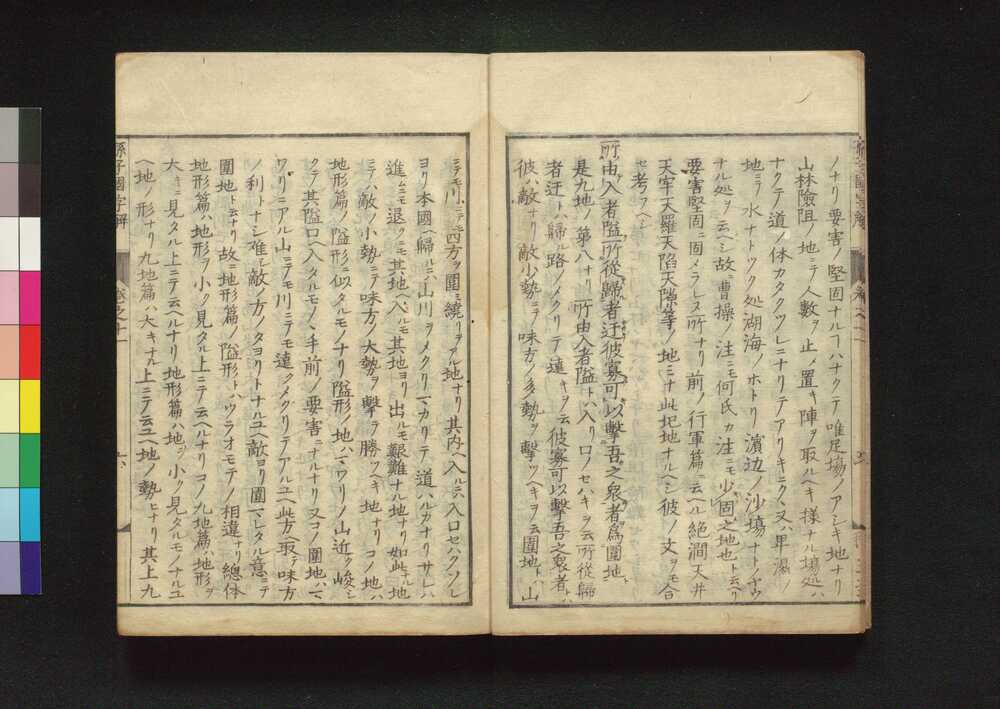 ノナリ要害ノ堅固ナルヿハナクテ唯足場ノアシキ地ナリ
山林險阻ノ地ニテ人數ヲ止メ置キ陣ヲ取ルヘキ様ナル場処ハ
ナクテ道ノ体カタクツレニナリテアリキニクヽ又ハ卑濕ノ
地ニテ水ナトツク処湖海ノホトリ濵辺ノ沙塲ナトノヤウ
ナル処ヲ云ヘシ故ニ曹操ノ注ニモ何氏カ注ニモ少固之地也ト云ヘリ
要害堅固ニ固メラレヌ所ナリ前ノ行軍篇ニ云ヘル絶澗天井
天牢天羅天陷天隙等ノ地ミナ此圮地ナルヘシ彼ノ文ヲモ合
セ考フヘシ
所由入者隘所從歸者迂彼寡可以擊吾之衆者爲圍地
是九地ノ第八ナリ所由入者隘トハ入リ口ノセハキヲ云所從歸
者迂トハ歸ル路ノメクリテ遠キヲ云彼寡可以擊吾之衆者トハ
彼ハ敵ナリ敵小勢ニテ味方ノ多勢ヲ擊ツヘキヲ云圍地トハ山
ニテモ川ニテモ四方ヲ圍ミ繞リテアル地ナリ其内ヘ入ルニハ入口セハクソレ
ヨリ本國ヘ歸ルニハ山川ヲメクリマカリテ道ハルカナリサレハ
進ムニモ退クニモ其地ヘ入ルモ其地ヨリ出ルモ艱難ナル地ナリ如此ナル地
ニテハ敵ノ小勢ニテ味方ノ大勢ヲ擊テ勝ツヘキ地ナリコノ地ハ
地形篇ノ隘形ニ似タルモノナリ隘形ノ地ハマワリノ山近ク峻シ
クテ其隘口ヘ入タルモノヽ手前ノ要害ニナルナリ又コノ圍地ハマ
ワリニアル山ニテモ川ニテモ遠クメクリテアルユヘ此方ヘ取テ味方
ノ利トナシ難シ敵ノ方ノタヨリトナルユヘ敵ヨリ圍マレタル意ニテ
圍地ト云ナリ故ニ地形篇ノ隘形トハウラオモテノ相違ナリ總体
地形篇ハ地形ヲ小ク見タル上ニテ云ヘルナリコノ九地篇ハ地形ヲ
大キニ見タル上ニテ云ヘルナリ地形篇ハ地ヲ小ク見タルモノナルユ
ヘ地ノ形ナリ九地篇ハ大キナル上ニテ云ユヘ地ノ勢ヒナリ其上九
孫子國字解